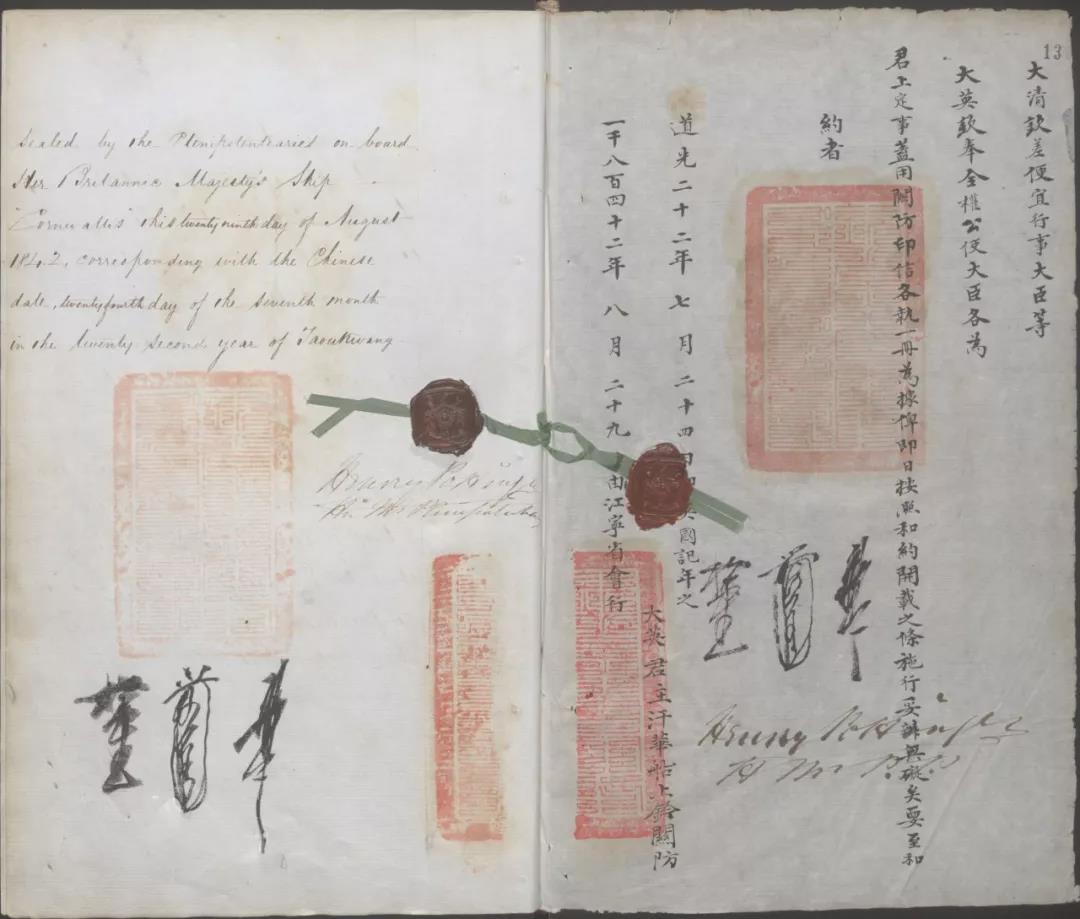 Sealed by the Plenipotentiaries on board
Her Britannic Majesty's Ship
"Cornwallis" this twenty ninth day of August
1842, corresponding with the Chinese
date, twenty fourth day of the seventh month
in the twenty second year of Taoukwang
Henry Pottinger
13
大清欽差便宜行事大臣等
大英欽奉全權公使大臣各為
君上定事蓋用關防印信各執一冊為據俾即日按照和約開載之條施行妥辦無礙矣要至和
約者
道光二十二年 七月 二十四日英國記年之
一千八百四十二年 八月 二十九由江寧省會行
大英君主汗華船上鈐關防
Henry Pottinger